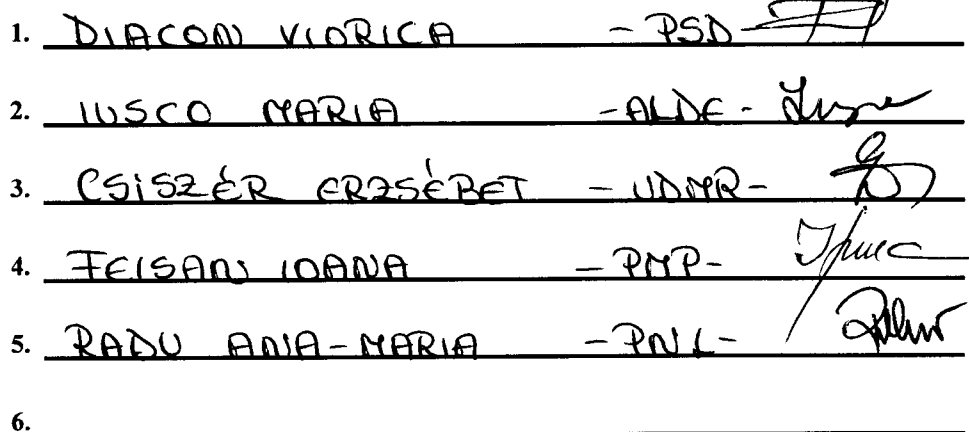 1. DIACON VIORICA - PSD -
2. IUSCO MARIA - ALDE -
3. CSISZÉR ERZSÉBET - UDMR -
4. FEISAN IOANA - PMP -
5. RADU ANA-MARIA - PNL -
6.